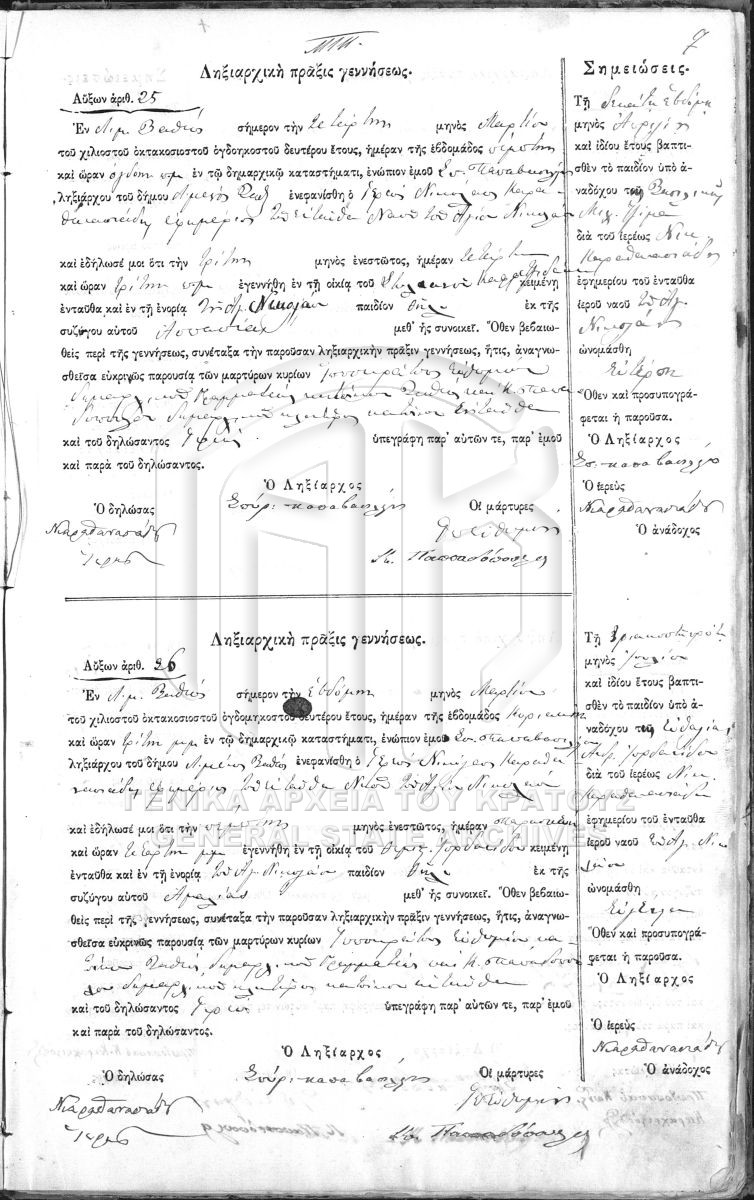 7
Ληξιαρχικὴ πρᾶξις γεννήσεως.
Αὔξων ἀριθ. 25
Ἐν Λιμ. Βαθέος σήμερον τὴν τετάρτην μηνὸς Μαρτίου
τοῦ χιλιοστοῦ ὀκτακοσιοστοῦ ὀγδοηκοστοῦ δευτέρου ἔτους, ἡμέραν τῆς ἑβδομάδος πέμπτην
καὶ ὥραν ὀγδόην πμ ἐν τῷ δημαρχικῷ καταστήματι, ἐνώπιον ἐμοῦ Σπ. Παπαβασίλη
ληξιάρχου τοῦ δήμου Λιμένος Βαθ. ἐνεφανίσθη ὁ Ἱερεὺς Νικόλαος Καρα
θανασιάδης ἐφημέριος τοῦ ἐνταῦθα Ναοῦ τοῦ Ἁγίου Νικολάου
καὶ ἐδήλωσέ μοι ὅτι τὴν τρίτην μηνὸς ἐνεστῶτος, ἡμέραν τετάρτην
καὶ ὥραν τρίτην πμ ἐγεννήθη ἐν τῇ οἰκίᾳ τοῦ κειμένῃ
ἐνταῦθα καὶ ἐν τῇ ἐνορίᾳ τοῦ Ἁγ. Νικολάου παιδίον θῆλυ ἐκ τῆς
συζύγου αὐτοῦ Ἀσπασίας μεθ᾽ ἧς συνοικεῖ. Ὅθεν βεβαιω-
θεὶς περὶ τῆς γεννήσεως, συνέταξα τὴν παροῦσαν ληξιαρχικὴν πρᾶξιν γεννήσεως, ἥτις, ἀναγνω-
σθεῖσα εὐκρινῶς παρουσίᾳ τῶν μαρτύρων κυρίων Ἱπποκράτους Εὐθυμίου
δημαρχικοῦ Γραμματέως κατοίκου Βαθέος καὶ Κ. Παπα
δοπούλου δημαρχικοῦ κλητῆρος κατοίκου ἐνταῦθα
καὶ τοῦ δηλώσαντος Ἱερέως ὑπεγράφη παρ᾽ αὐτῶν τε, παρ᾽ ἐμοῦ
καὶ παρὰ τοῦ δηλώσαντος.
Ὁ Ληξίαρχος
Σπυρ. Παπαβασίλης
Ὁ δηλώσας
Οἱ μάρτυρες
Ν Καραθανασιάδης
Ἱερεὺς
Ἱπ Εὐθυμίου
Κ. Παπαδόπουλος
Σημειώσεις.
Τῇ δεκάτῃ ἑβδόμῃ
μηνὸς Ἀπριλίου
καὶ ἰδίου ἔτους βαπτι-
σθὲν τὸ παιδίον ὑπὸ ἀ-
ναδόχου τοῦ
διὰ τοῦ ἱερέως Νικ.
Καραθανασιάδη
ἐφημερίου τοῦ ἐνταῦθα
ἱεροῦ ναοῦ τοῦ Ἁγ.
Νικολάου
ὠνομάσθη
Εὐτέρπη
Ὅθεν καὶ προσυπογρά-
φεται ἡ παροῦσα.
Ὁ Ληξίαρχος
Σπ. Παπαβασίλης
Ὁ ἱερεὺς
Ν Καραθανασιάδης
Ὁ ἀνάδοχος
Ληξιαρχικὴ πρᾶξις γεννήσεως.
Αὔξων ἀριθ. 26
Ἐν Λιμ. Βαθέος σήμερον τὴν ἑβδόμην μηνὸς Μαρτίου
τοῦ χιλιοστοῦ ὀκτακοσιοστοῦ ὀγδοηκοστοῦ δευτέρου ἔτους, ἡμέραν τῆς ἑβδομάδος Κυριακὴν
καὶ ὥραν τρίτην μμ ἐν τῷ δημαρχικῷ καταστήματι, ἐνώπιον ἐμοῦ Σπ. Παπαβασίλη
ληξιάρχου τοῦ δήμου Λιμένος Βαθέος ἐνεφανίσθη ὁ Ἱερεὺς Νικόλαος Καραθα
νασιάδης ἐφημέριος τοῦ ἐνταῦθα Ναοῦ τοῦ Ἁγίου Νικολάου
ΓΕΝΙΚΑ ΑΡΧΕΙΑ ΤΟΥ ΚΡΑΤΟΥΣ
GENERAL STATE ARCHIVES
καὶ ἐδήλωσέ μοι ὅτι τὴν πέμπτην μηνὸς ἐνεστῶτος, ἡμέραν παρασκευὴν
καὶ ὥραν τετάρτην μμ ἐγεννήθη ἐν τῇ οἰκίᾳ τοῦ Ἰορδανίδου κειμένῃ
ἐνταῦθα καὶ ἐν τῇ ἐνορίᾳ τοῦ Ἁγ. Νικολάου παιδίον θῆλυ ἐκ τῆς
συζύγου αὐτοῦ Ἀμαλίας μεθ᾽ ἧς συνοικεῖ. Ὅθεν βεβαιω-
θεὶς περὶ τῆς γεννήσεως, συνέταξα τὴν παροῦσαν ληξιαρχικὴν πρᾶξιν γεννήσεως, ἥτις, ἀναγνω-
σθεῖσα εὐκρινῶς παρουσίᾳ τῶν μαρτύρων κυρίων Ἱπποκράτους Εὐθυμίου κα-
τοίκου Βαθέος δημαρχικοῦ Γραμματέως καὶ Κ. Παπαδοπού
λου δημαρχικοῦ κλητῆρος κατοίκου ἐνταῦθα
καὶ τοῦ δηλώσαντος Ἱερέως ὑπεγράφη παρ᾽ αὐτῶν τε, παρ᾽ ἐμοῦ
καὶ παρὰ τοῦ δηλώσαντος.
Ὁ Ληξίαρχος
Σπυρ. Παπαβασίλης
Ὁ δηλώσας
Οἱ μάρτυρες
Ν Καραθανασιάδης
Ἱερεὺς
Ἱπ Εὐθυμίου
Κ. Παπαδόπουλος
Τῇ τριακοστῇ πρώτῃ
μηνὸς Ἰουλίου
καὶ ἰδίου ἔτους βαπτι-
σθὲν τὸ παιδίον ὑπὸ ἀ-
ναδόχου τοῦ
Ἰορδανίδου
διὰ τοῦ ἱερέως Νικ.
Καραθανασιάδη
ἐφημερίου τοῦ ἐνταῦθα
ἱεροῦ ναοῦ τοῦ Ἁγ. Νικ
ολάου
ὠνομάσθη
Ὅθεν καὶ προσυπογρά-
φεται ἡ παροῦσα.
Ὁ Ληξίαρχος
Ὁ ἱερεὺς
Ν Καραθανασιάδης
Ὁ ἀνάδοχος